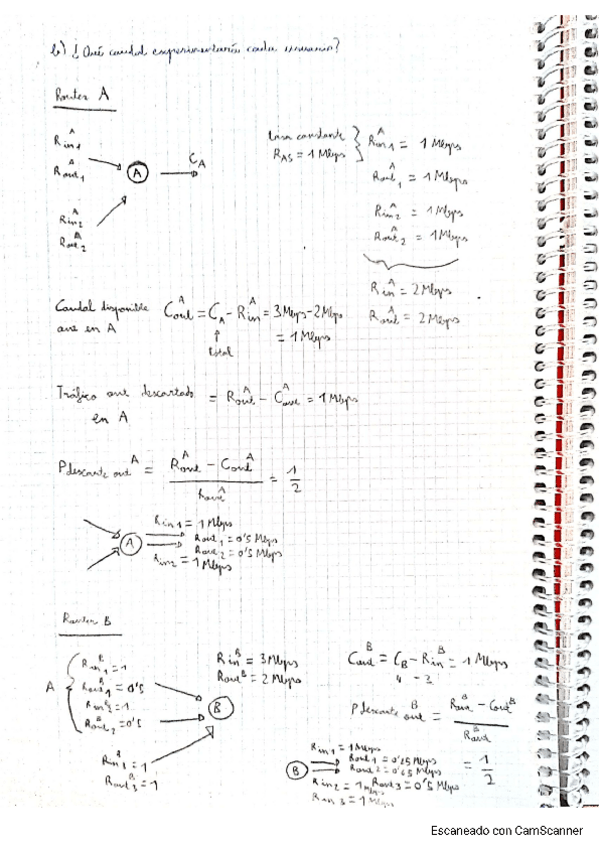 b) ¿Qué caudal experimentaría cada usuario?
Router A
Rin1^A
Rout1^A
A
C_A
Rin2^A
Rout2^A
Tasa constante
R_AS = 1 Mbps
Rin1^A = 1 Mbps
Rout1^A = 1 Mbps
Rin2^A = 1 Mbps
Rout2^A = 1 Mbps
Rin^A = 2 Mbps
Rout^A = 2 Mbps
Caudal disponible Cout^A = C_A - Rin^A = 3 Mbps - 2 Mbps
out en A
↑
total
= 1 Mbps
Tráfico out descartado = Rout^A - Cout^A = 1 Mbps
en A
Pdescarte out^A = (Rout^A - Cout^A) / Rout^A = 1/2
A
Rin1 = 1 Mbps
Rout1 = 0'5 Mbps
Rout2 = 0'5 Mbps
Rin2 = 1 Mbps
Router B
A
Rin1^B = 1
Rout1^B = 0'5
Rin2^B = 1
Rout2^B = 0'5
B
Rin3^B = 1
Rout3^B = 1
Rin^B = 3 Mbps
Rout^B = 2 Mbps
Cout^B = C_B - Rin^B = 1 Mbps
4 - 3
Pdescarte out^B = (Rout^B - Cout^B) / Rout^B
= 1/2
B
Rin1 = 1 Mbps
Rout1 = 0'25 Mbps
Rout2 = 0'25 Mbps
Rin2 = 1 Mbps Rout3 = 0'5 Mbps
Rin3 = 1 Mbps
Escaneado con CamScanner